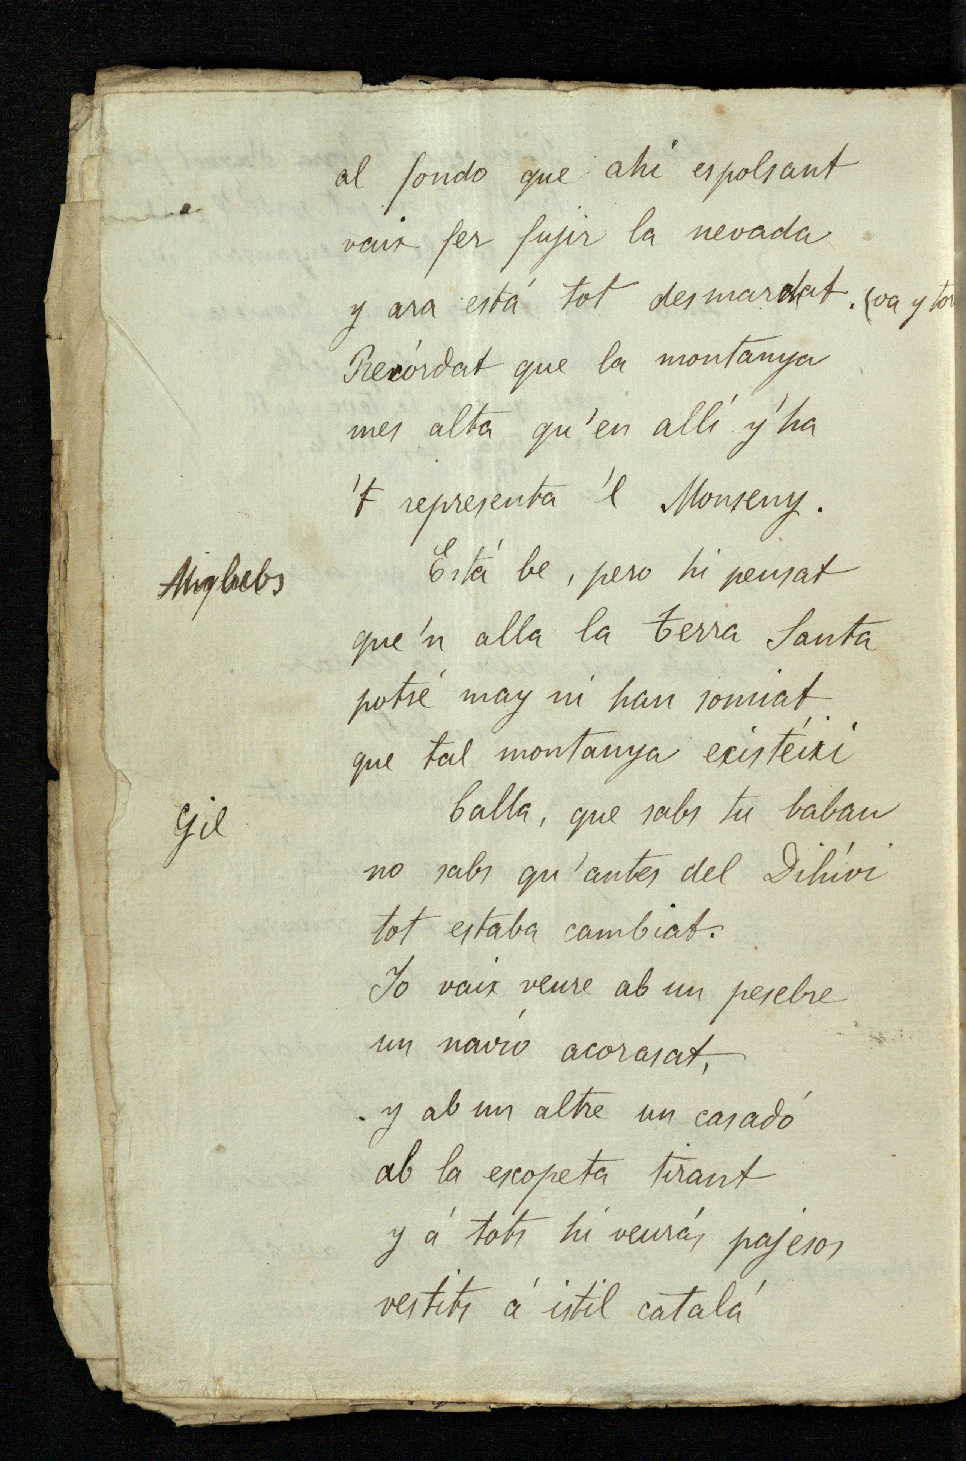 al fondo que ahí espolsant
vaix fer fujir la nevada
y ara está tot desmardat. (va y tor
Recórdat que la montanya
mes alta qu'en allí y'ha
't representa 'l Monseny.
Está be, pero hi pensat
que'n alla la terra Santa
potsé may ni han somiat
que tal montanya existéixi
Gil
Calla, que sabs tu babau
no sabs qu'antes del Dilúvi
tot estaba cambiat.
Jo vaix veure ab un pesebre
un navío acorasat,
y ab un altre un casadó
ab la escopeta tirant
y á tots hi veurás pajesos
vestits á istil catalá